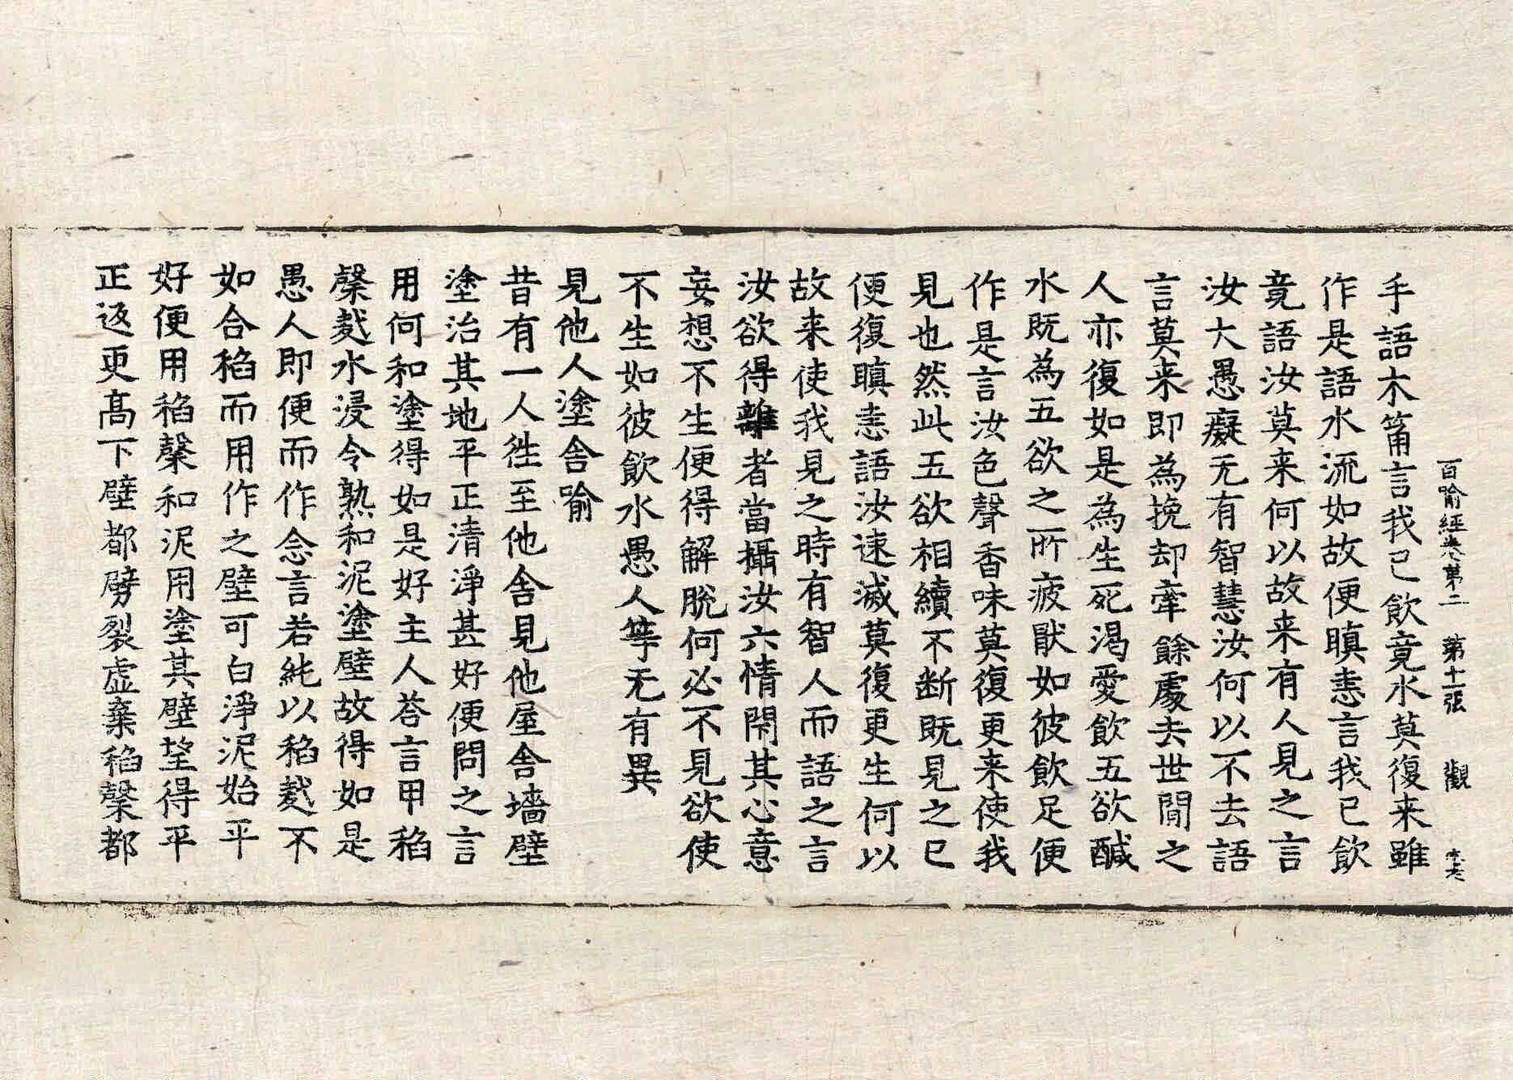 百喻經卷第二　第十一張　觀
手語木筩言我已飲竟水莫復来雖
作是語水流如故便瞋恚言我已飲
竟語汝莫来何以故来有人見之言
汝大愚癡无有智慧汝何以不去語
言莫来即為挽却牽餘處去世間之
人亦復如是為生死渴愛飲五欲醎
水既為五欲之所疲猒如彼飲足便
作是言汝色聲香味莫復更来使我
見也然此五欲相續不断既見之已
便復瞋恚語汝速滅莫復更生何以
故来使我見之時有智人而語之言
汝欲得離者當攝汝六情閇其心意
妄想不生便得解脫何必不見欲使
不生如彼飲水愚人等无有異
見他人塗舍喻
昔有一人徃至他舍見他屋舍墻壁
塗治其地平正清淨甚好便問之言
用何和塗得如是好主人荅言用稻
糓𪍿水浸令熟和泥塗壁故得如是
愚人即便而作念言若純以稻𪍿不
如合稻而用作之壁可白淨泥始平
好便用稻糓和泥用塗其壁望得平
正返更髙下壁都劈裂虛棄稻糓都